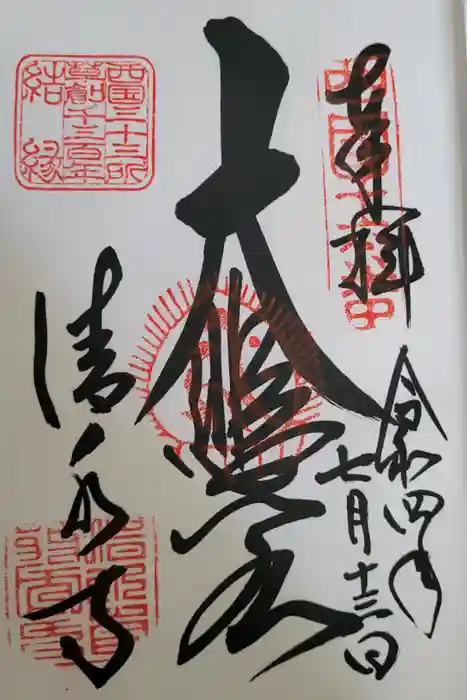 奉拝
令和四年
七月十三日
大悲閣
西国三十三所
草創千三百年
結縁
清水寺